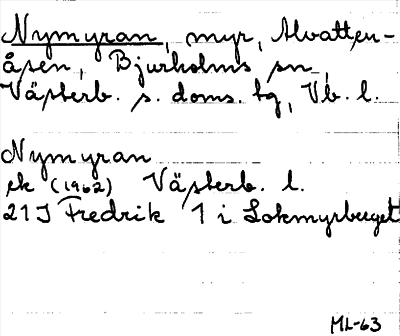 Nymyran, myr, Alvatten-
åsen, Bjurholms sn,
Västerb. s. doms. tg, Vb. l.
Nymyran
ek (1962) Västerb. l.
21 J Fredrik 1 i Lokmyrberget
ML-63